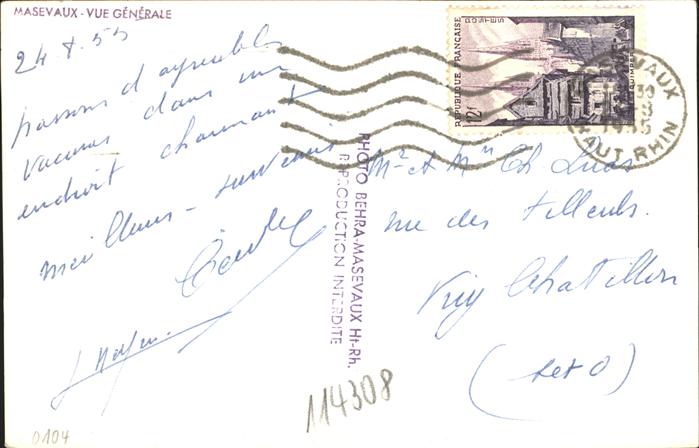 MASEVAUX - VUE GÉNÉRALE
24.8.55
passons d'agréables
vacances dans un
endroit charmant
Meilleurs souvenirs
PHOTO BEHRA-MASEVAUX Ht-Rh.
REPRODUCTION INTERDITE
RÉPUBLIQUE FRANÇAISE
POSTES
12F
QUIMPER
1955
HAUT RHIN
Mr et Mme Ch. Lucas
rue des Tilleuls.
Viry Chatillon
(S et O)
114308
0104